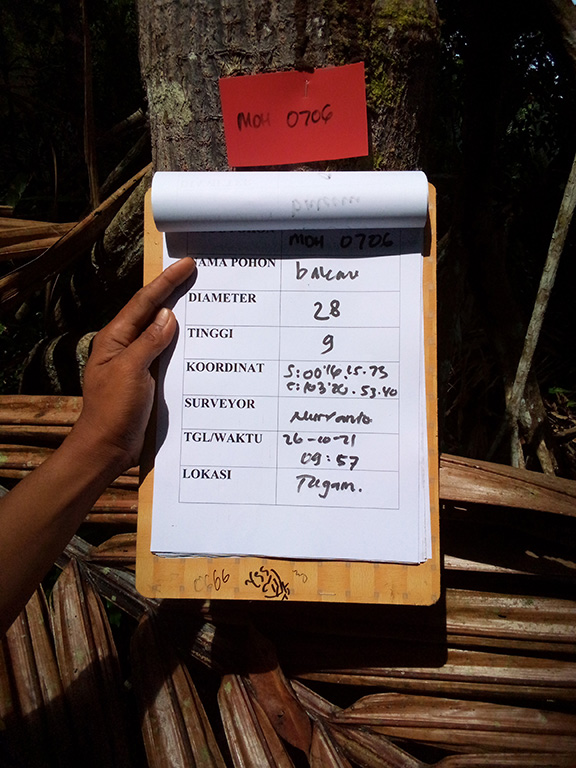 MOH 0706
MOH 0706
NAMA POHON bakau
DIAMETER 28
TINGGI 9
KOORDINAT S:00°16.15.73
E:103°20.53.40
SURVEYOR Nuryanto
TGL/WAKTU 26-10-21
09:57
LOKASI Tegam.
0666